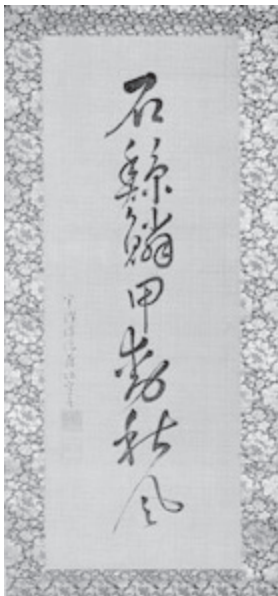 石鯨鱗甲動秋風